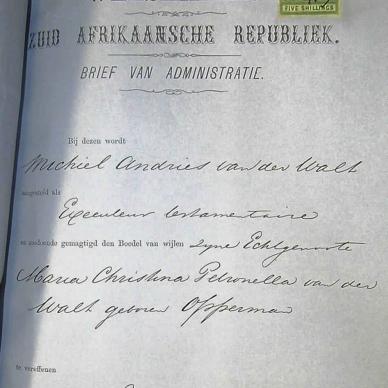 FIVE SHILLINGS
ZUID AFRIKAANSCHE REPUBLIEK.
BRIEF VAN ADMINISTRATIE.
Bij dezen wordt
Michiel Andries van der Walt
aangesteld als
Executeur testamentaire
en zoodoende gemagtigd den Boedel van wijlen zyne Echtgenoote
Maria Christina Petronella van der
Walt geboren Opperman
te vereffenen